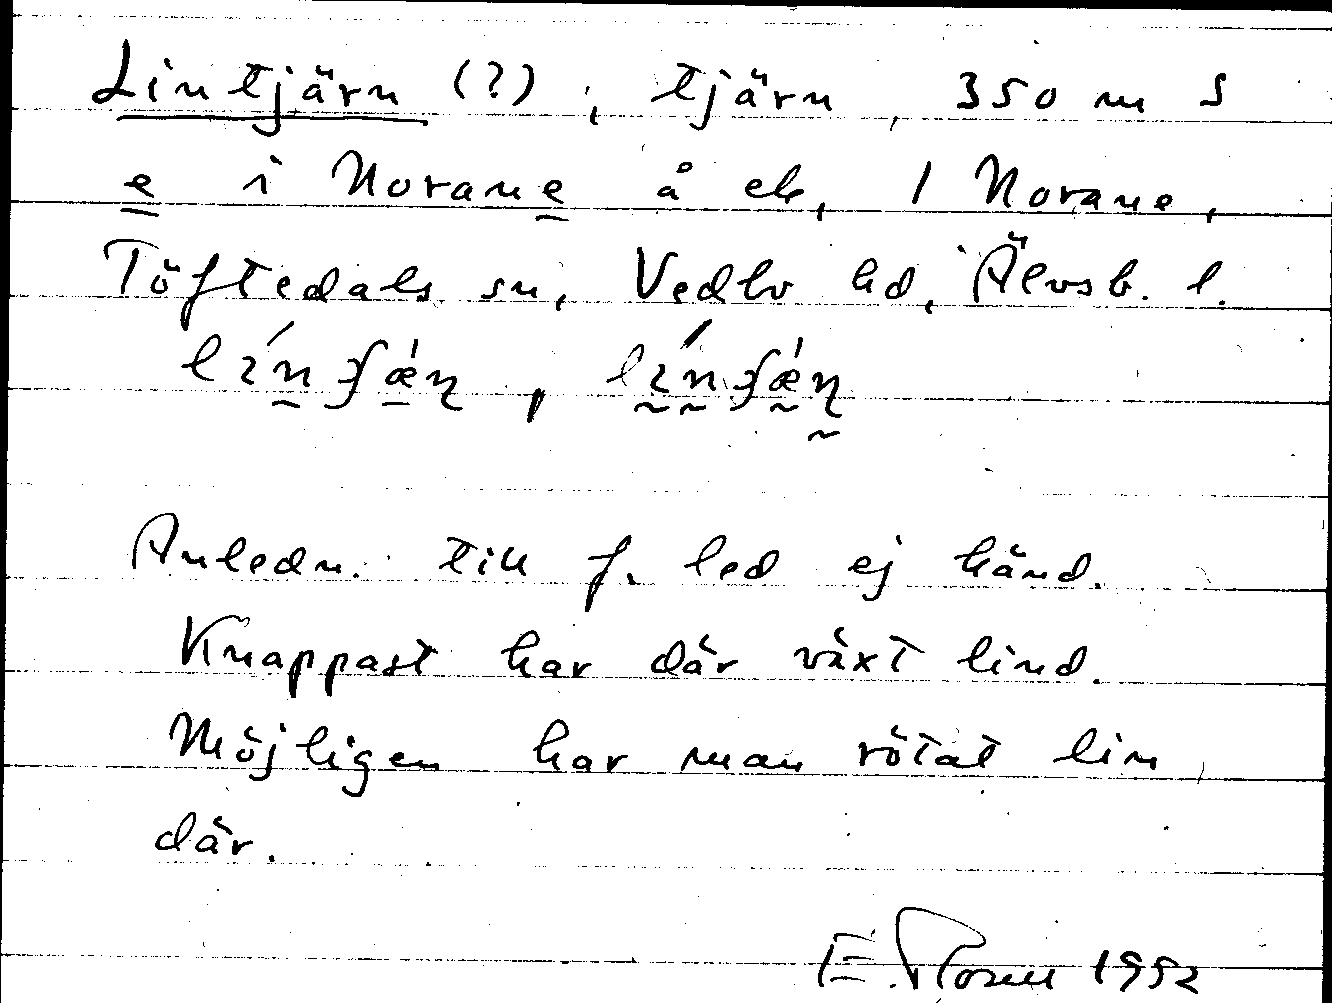 Lintjärn (?), tjärn, 350 m S
e i Norane å ek, 1 Norane,
Töftedals sn, Vedbo hd, Älvsb. l.
Anledn. till f. led ej känd.
Knappast har där växt lind.
Möjligen har man rötat lin
där.
E. 1992